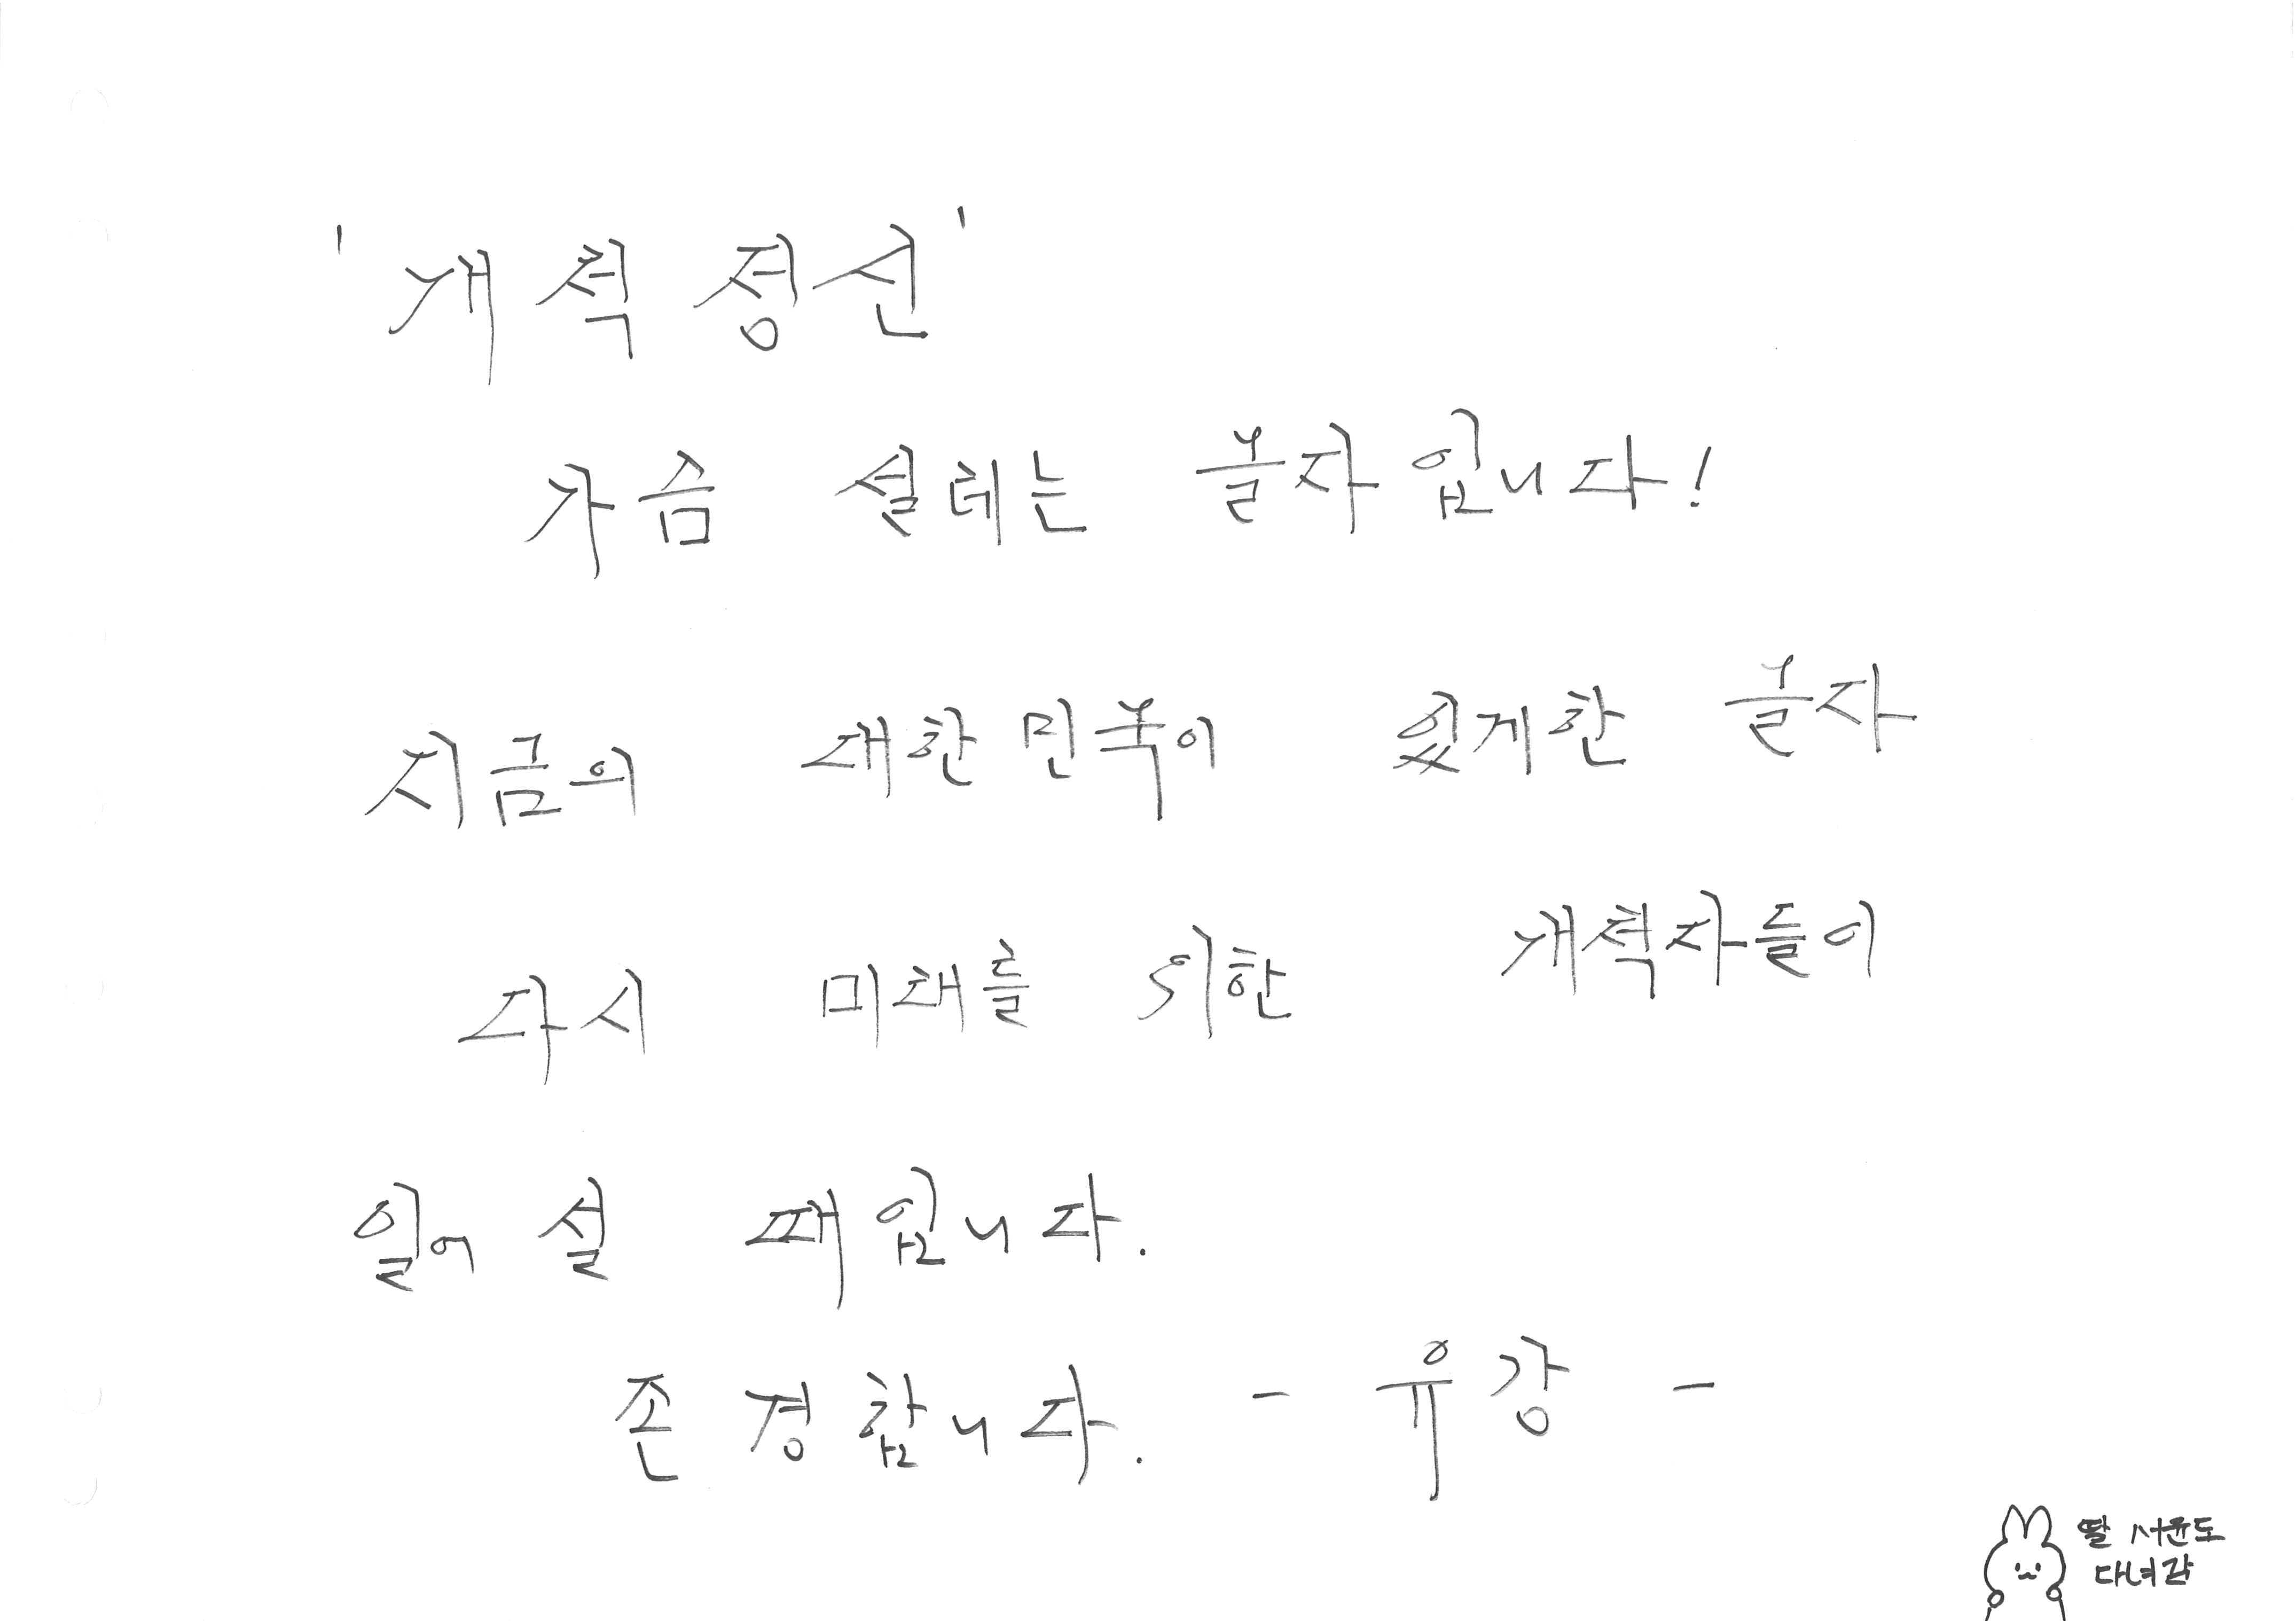 '개척정신'
가슴 설레는 글자입니다!
지금의 대한민국이 있게한 글자
다시 미래를 위한 개척자들이
일어설 때입니다.
존경합니다. - 유강 -
딸 서윤도
다녀감